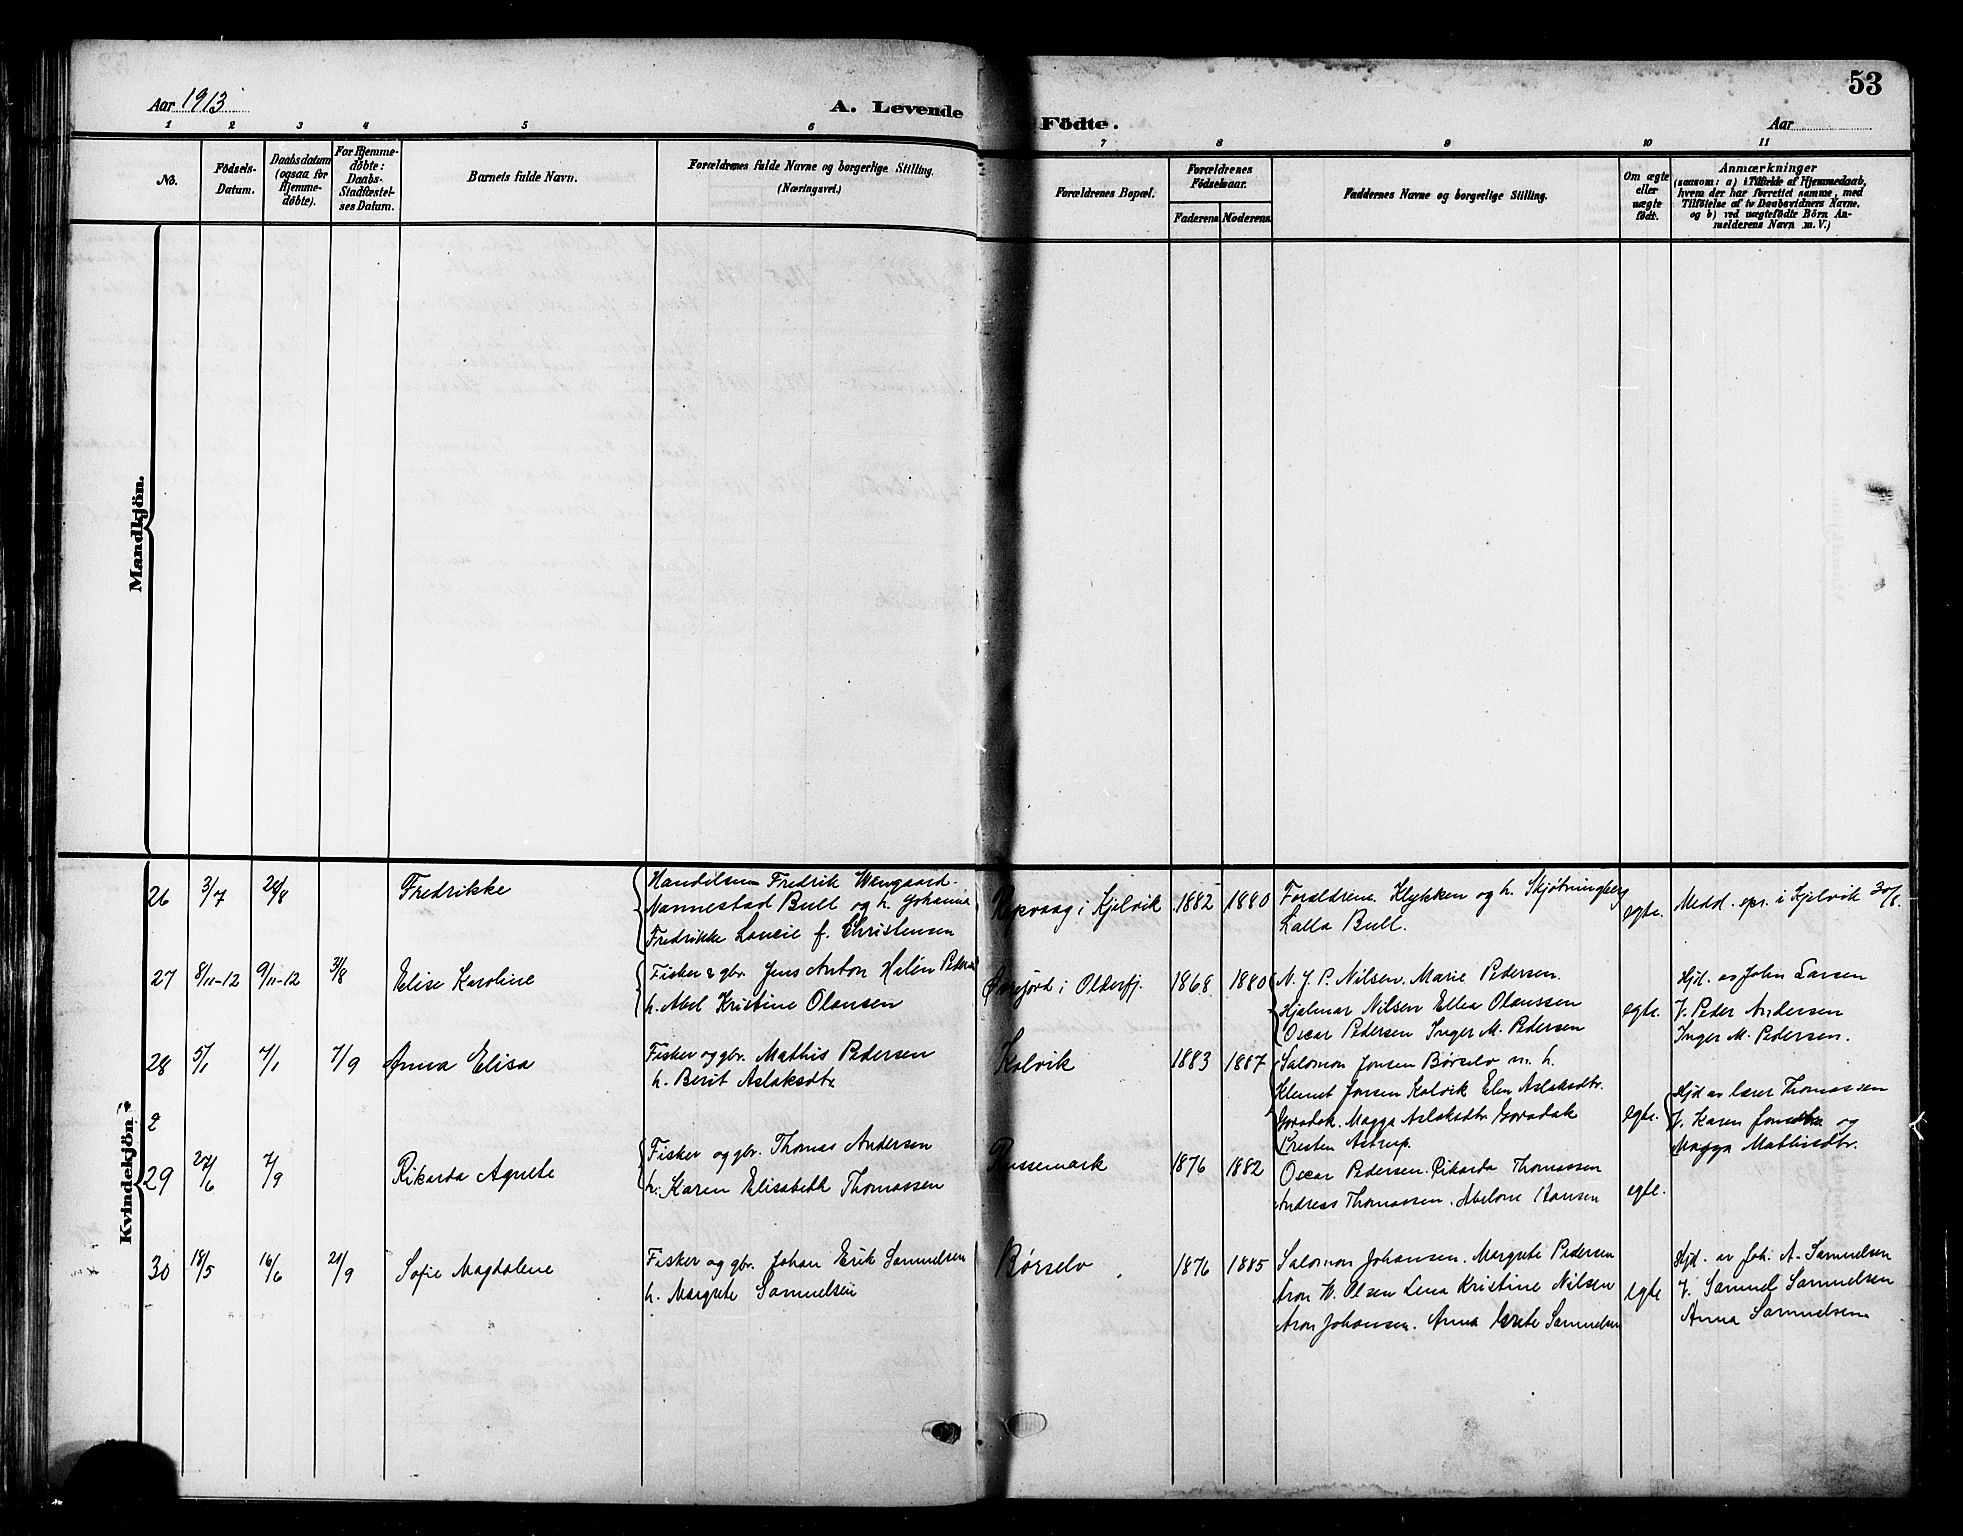 53
Aar 1913
A. Levende Födte.
Aar
1 2 3 4 5 6 7 8 9 10 11
No.
Födsels-
Datum.
Daabsdatum
(ogsaa for
Hjemme-
døbte).
For Hjemme-
døbte:
Daabs-
Stadfæstel-
ses Datum.
Barnets fulde Navn.
Forældrenes fulde Navne og borgerlige Stilling.
(Næringsvei.)
Forældrenes Bopæl.
Forældrenes
Fødselsaar.
Faderens. Moderens.
Faddernes Navne og borgerlige Stilling.
Om ægte
eller
uægte
født.
Anmærkninger
(saasom: a) i Tilfælde af Hjemmedaab,
hvem der har forrettet samme, med
Tilföielse af to Daabsvidners Navne,
og b) ved uægtefödte Börn An-
melderens Navn m. V.)
Mandkjön.
Kvindekjön
26 3/7 24/8 Fredrikke
Handelsm Fredrik Wengaard
Nannestad Bull og h. Johanna
Fredrikke f. Christensen
Repvaag i Kjelvik 1882 1880
Forældrene. Klykken og h. Skjøtningberg
Lalla Bull.
egte.
Medd. spr. i Kjelvik 30/8.
27 8/11-12 9/11-12 3/8 Elise Karoline
Fisker & gbr. Jens Anton Halén Pedersen
h. Abel Kristine Olausen
i Olderfj. 1868 1880
N. J. P. Nilsen. Marie Pedersen.
Hjalmar Nilsen Ellea Olaussen
Oscar Pedersen Inger M. Pedersen
egte.
Hjd. av John Larsen
V. Peder Andersen
Inger M. Pedersen.
28 5/1 7/1 7/9 Anna Elisa
Fisker og gbr. Mathis Pedersen
h. Berit Aslaksdtr
Kolvik 1883 1887
Salomon Jonsen Børselv m. h.
Klemet Jonsen Kolvik Elen Aslaksdtr.
Goradak. Magga Aslaksdtr Goradak
Kresten Astrup.
egte.
Hjd av lærer Thomassen
V. Karen Jonsdtr og
Magga Mathisdtr.
2
29 27/6 7/9 Rikarda Agnete
Fisker og gbr. Thomas Andersen
h. Karen Elisabeth Thomassen
Russemark 1876 1882
Oscar Pedersen. Rikarda Thomassen
Andreas Thomassen. Abelone Hansen
egte.
30 18/5 16/6 21/9 Sofie Magdalene
Fisker og gbr. Johan Erik Samuelsen
h. Margrete Samuelsen
Børselv 1876 1885
Salomon Johansen. Margrete Pedersen
Aron W. Olsen Lena Kristine Nilsen
Aron Johansen. Anna Grete Samuelsen
egte
Hjd. av Joh. A. Samuelsen
V. Samuel Samuelsen
Anna Samuelsen